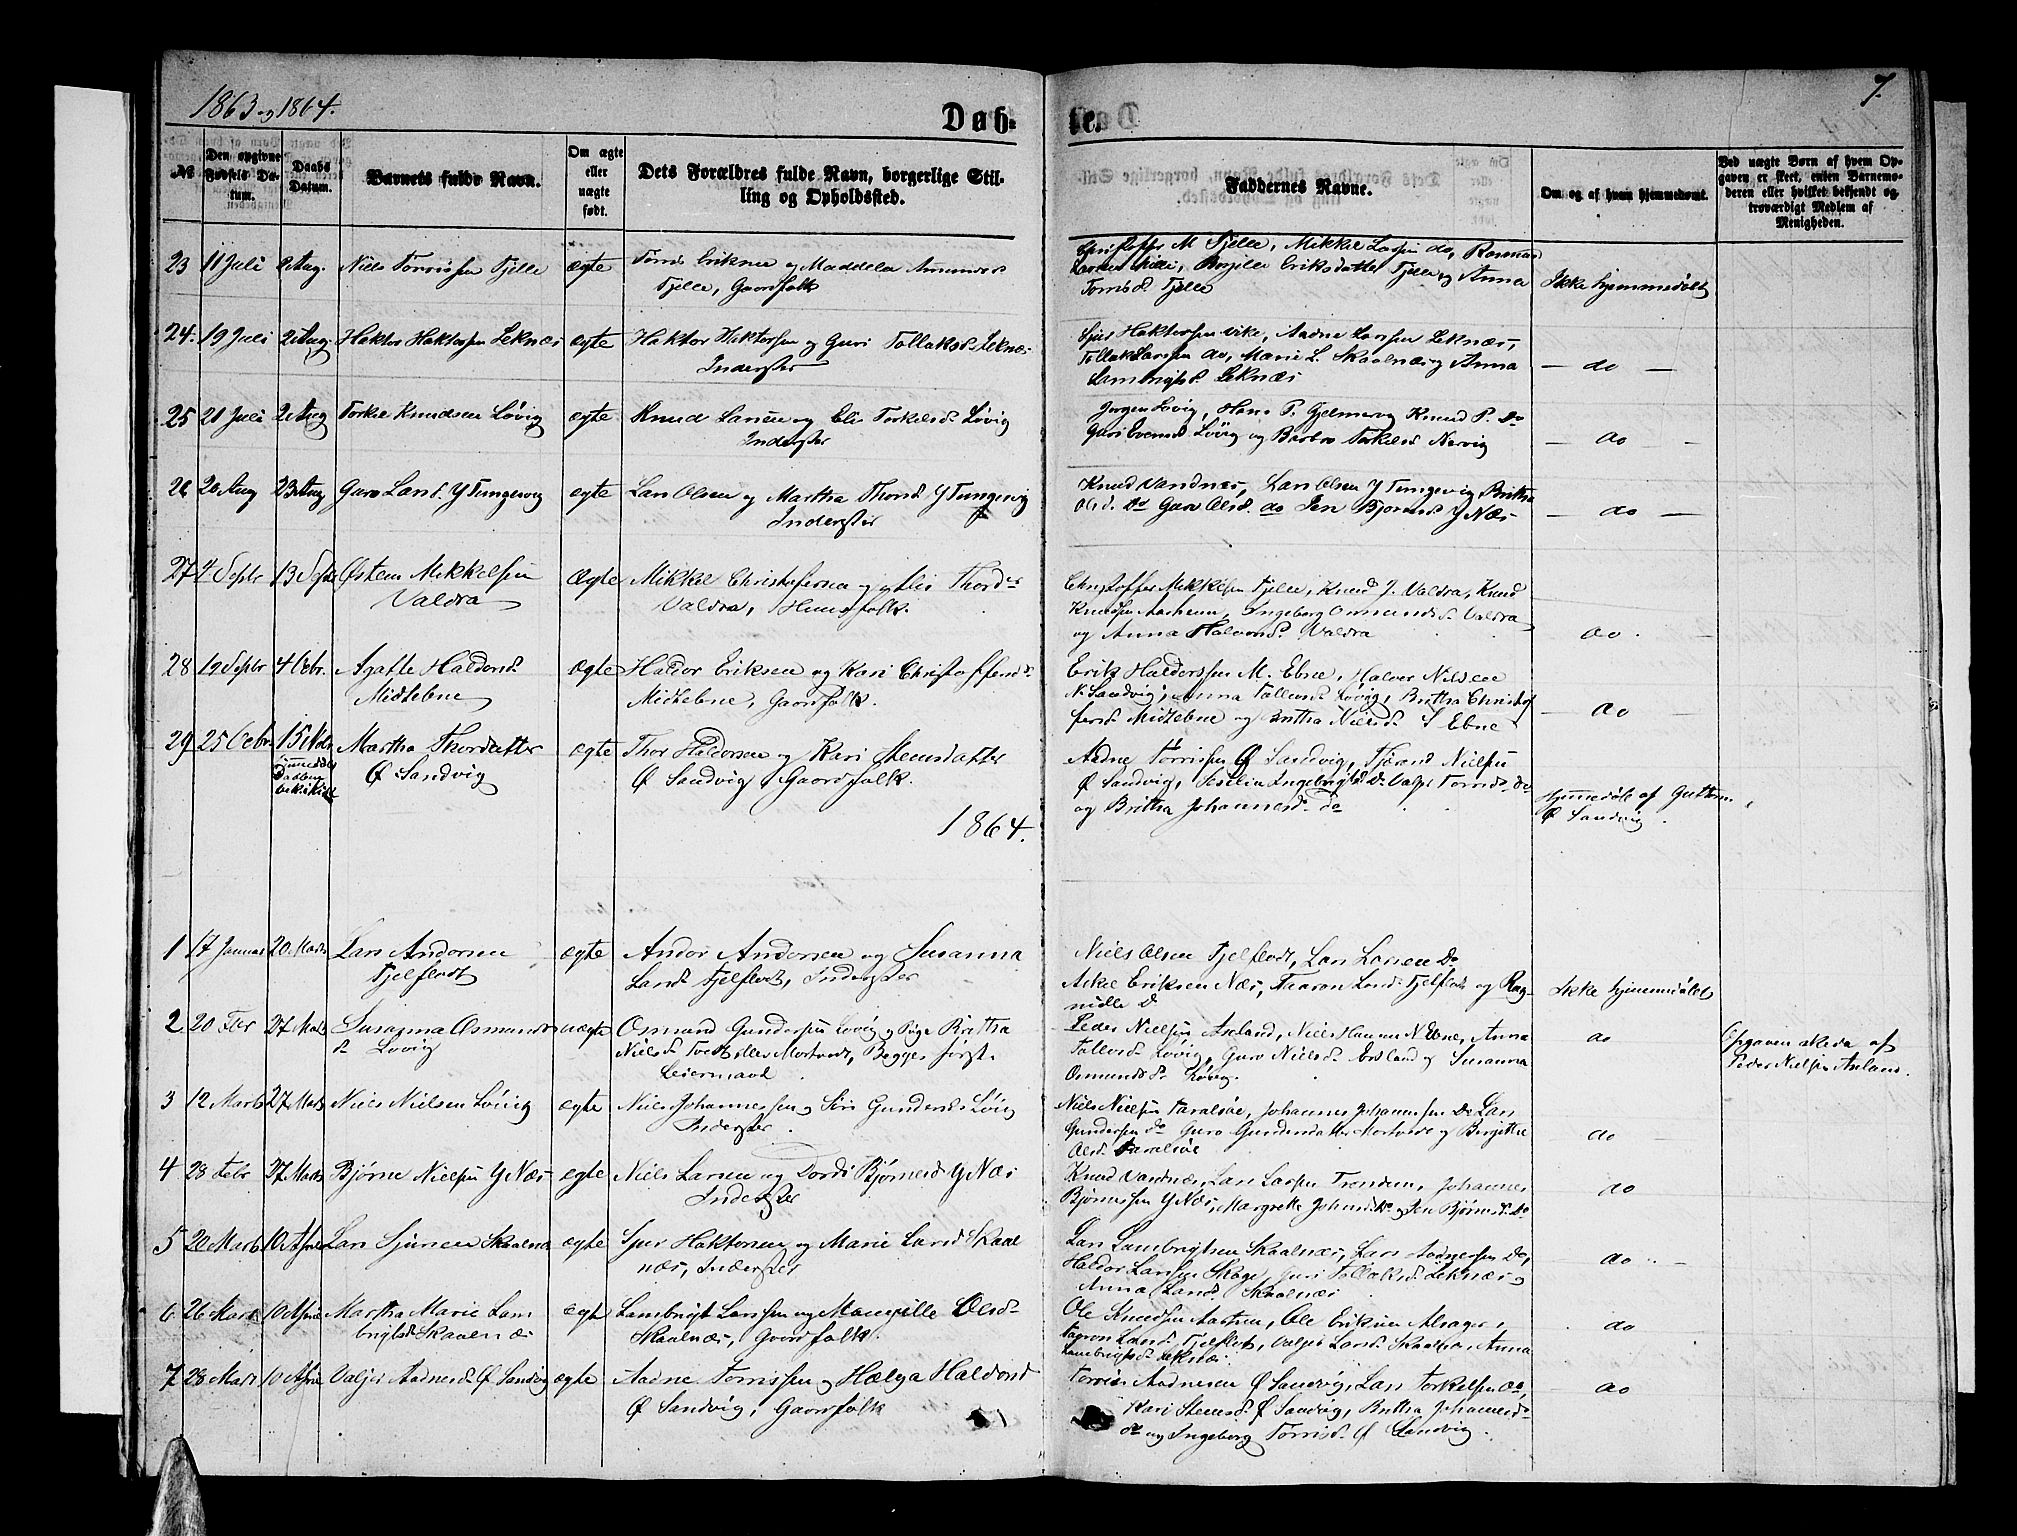 1863 og 1864.
Døb-
te.
7.
№
Den opgivne Fødsels Datum.
Daabs Datum.
Barnets fulde Navn.
Om ægte eller uægte født.
Dets Forældres fulde Navn, borgerlige Stilling og Opholdssted.
Faddernes Navne.
Om og af hvem hjemmedøbt.
Ved uægte Børn af hvem Opgaven er skeet, enten Barnemoderen eller hvilket bekjendt og troværdigt Medlem af Menigheden.
23 11 Juli 2 Aug. Niels Torrissen Fjelle ægte Torris Eriksen og Maddela
Fjelle, Gaardfolk
M Fjelle, Mikkel Larsen do,
Eriksdatter Fjelle og Anna
Torrisd. Fjelle
Ikke hjemmedøbt
24. 19 Juli 2 Aug. Haktor Haktorsen Leknæs ægte Haktor Haktorsen og Guri Tollaksd. Leknæs
Inderster
Sjur Haktorsen Vike, Aadne Larssen Leknæs,
Tollak Larssen do, Marie L. Skaalnæs og Anna
Lambrigtsd. Leknæs
— do —
25 21 Juli 2 Aug Torkel Knudsen Løvig ægte Knud Larsen og Eli Torkelsd. Løvig
Inderster
Jørgen Løvig, Hans P. Gjelmervig Knud P. Do
Guri Svensd Løvig og Barbro Torkelsd. Nervig
— do —
26 20 Aug 23 Aug Guro Larsd. Y Tungesvig ægte Lars Olsen og Martha Thorsd Y Tungesvig
Inderster
Knud Vandnes, Lars Olsen Y Tungesvig, Brittha
Olsd. Do Guro Olsd. do Bjørnsd Y Næs
— do —
27 4 Septbr 13 Septbr Østen Mikkelsen ægte Mikkel Christofersen og Thorsdr
Valdra
Valdra, Huusfolk.
Christoffer Mikkelsen Fjelle, Knud J. Valdra, Knud
Knudsen Ingeborg Osmundsd Valdra
og Anna Halvorsd. Valdra
do. —
28 19 Septbr 4 Octbr. Agatte Haldorsd. ægte Haldor Eriksen og Kari Christoffersd.
Midtebne
Midtebne, Gaardfolk.
Erik Haldorssen M. Ebne, Halvor Nilssen
N. Sandvig, Anna Tollevsd. Løvig, Brittha Christof
fersd. Midtebne og Brittha Nielsd. S Ebne
— do —
29 25 Octbr. 15 Nov. Martha Thorsdatter ægte Thor Haldorsen og Kari Steensdatter
Ø Sandvig
Ø Sandvig Gaardfolk.
Aadne Torrissen Ø Sandvig, Tjerand Nielsen
Ø Sandvig, Siselia Ingebrigtsd. Do Valjer Torrisd. do
og Brittha Johannesd. do
Hjemmedøbt af Guttorm
Ø Sandvig
1864.
1 17 Januar 20. Marts Lars Andorsen ægte Andor Andersen og Susanna
Fjelflodt
Larsd. Fjelflodt, Inderster
Niels Olsen Fjelflodt, Lars Larsen Do
Askel Eriksen Næs, Taaran Larsd. Fjelflodt og Rag-
nilde Do
Ikke hjemmedøbt
2 20 Febr 27 Marts Susanna Osmunds uægte Osmund Gundersen Løvig og Pige Brittha
d. Løvig
Nielsd. Tvedt eller Mortvedt, Begges første
Leiermaal
Peder Nielsen Axland, Niels Hansen N Ebne, Anna
Tollevsd. Løvig, Guro Nielsd. Axland og Susanna
Osmundsd. Løvig.
do
Opgaven skeet af
Peder Nielsen Axland.
3 12 Marts 27 Marts Niels Nielsen Løvig ægte Niels Johannessen og Siri Gundersd. Løvig
Inderster.
Niels Nielsen Taralsøe, Johannes Johannessen Do Lars
Gundersen do Guro Gundersdatter Mortvedt og Birgitte
Olsd. Taralsøe
do —
4 28 Febr 27 Marts Bjørne Nielsen Y Næs ægte Niels Larsen og Dordi Bjørnesd Y Næs
Inderster
Knud Vandnæs, Lars Larsen Johannes
Bjørnessen Y Næs, Margrethe Johansd. Do og Bjørnsd. Do
do
5 20 Marts 10 April Lars Sjursen Skaalnæs ægte Sjur Haktorsen og Marie Larsd Skaal
næs, Inderster
Lars Lambrigtsen Skaalnæs, Lars Aadnessen Do,
Haldor Larssen Skoge, Guri Tollaksd. Leknæs og
Anna Larsd. Skaalnæs
do
6 26 Marts 10 April Martha Marie Lam ægte Lambrigt Larssen og Olsd-
brigtsd Skaalnæs
Skaalnæs, Gaardfolk.
Ole Knudsen Ole Eriksen Alsager,
Larsd. Fjelflodt, Valjer Larsd. Skaalnæs, Anna
Lambrigtsd. Leknæs
— do
7 28 Marts 10 April Valjer Aadnesd. Ø Sandvig ægte Aadne Torrissen og Hælga Haldorsd
Ø Sandvig, Gaardfolk
Torris Aadnesen Ø Sandvig, Lars Torkelsen do,
Kari Steensd. Ø Sandvig, Brittha Johannesd.
do og Ingeborg Torrisd. Ø Sandvig.
— do